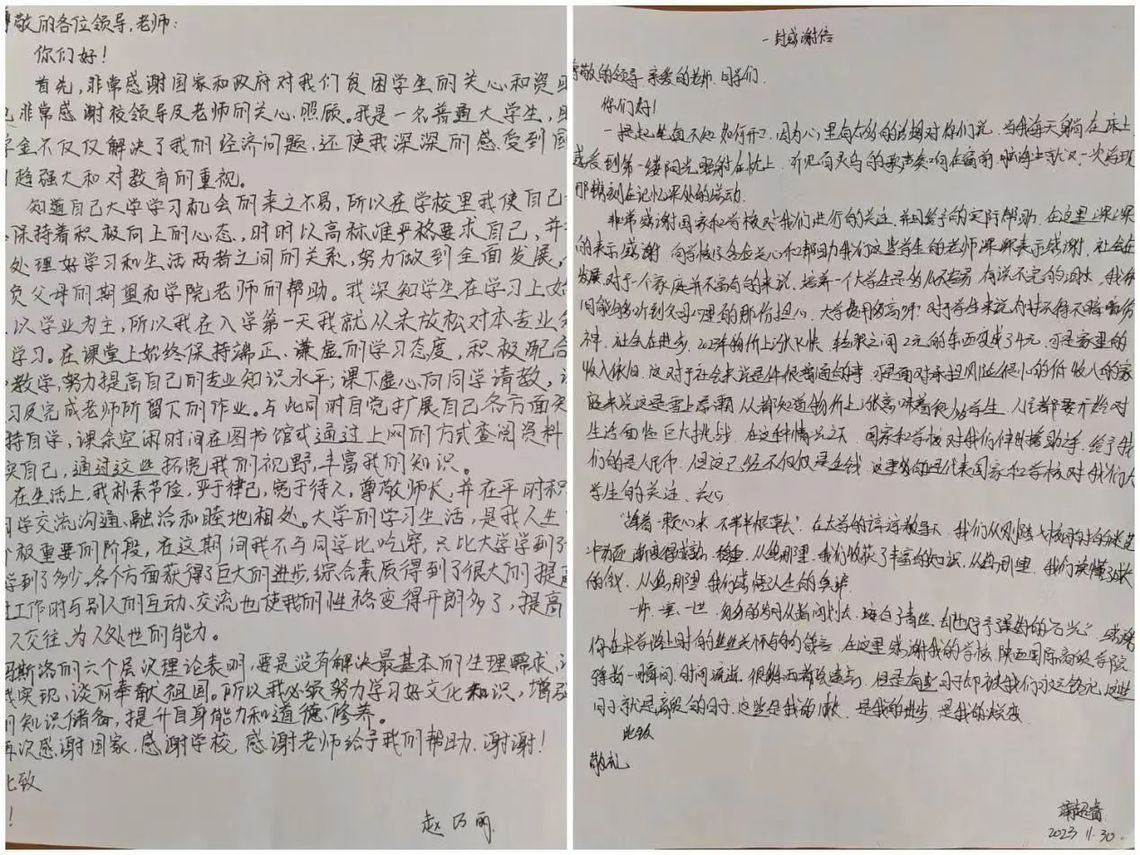 敬的各位领导,老师:
你们好!
首先,非常感谢国家和政府对我们贫困学生的关心和资
非常感谢校领导及老师的关心.照顾。我是一名普通大学生,
学金不仅仅解决了我的经济问题,还使我深深的感受到国
趋强大和对教育的重视。
知道自己大学学习机会的来之不易,所以在学校里我使自己一
保持着积极向上的心态,时时以高标准严格要求自己,并
处理好学习和生活两者之间的关系,努力做到全面发展,
负父母的期望和学院老师的帮助。我深知学生在学习上始
以学业为主,所以我在入学第一天我就从未放松对本专业
学习。在课堂上始终保持端正、谦虚的学习态度,积极配合
教学,努力提高自己的专业知识水平;课下虚心向同学请教,
习及完成老师所留下的作业。与此同时自觉扩展自己各方面
持自学,课余空闲时间在图书馆或通过上网的方式查阅资料
实自己,通过这些拓宽我的视野,丰富我的知识。
在生活上,我朴素节俭,严于律己,宽于待人,尊敬师长,并在平时积
同学交流沟通、融洽和睦地相处。大学的学习生活,是我人生
极重要的阶段,在这期间我不与同学比吃穿,只比大学学到了
学到了多少,各个方面获得了巨大的进步,综合素质得到了很大的提高
工作时与别人的互动、交流也使我的性格变得开朗多了,提高
人交往、为人处世的能力。
马斯洛的六个层次理论表明,要是没有解决最基本的生理需求,
我实现,谈何奉献祖国。所以我必须努力学习好文化知识,增强
知识储备,提升自身能力和道德修养。
再次感谢国家、感谢学校、感谢老师给予我的帮助、谢谢!
此致
!
赵乃丽
一封感谢信
尊敬的领导、亲爱的老师、同学们:
你们好!
一提起笔面不知如何开口,因为心里有太多的话想对你们说,当我每天躺在床上
感受到第一缕阳光照射在枕上,听见向灵鸟的歌声萦绕在窗前,脑海上就又一次浮现
那镌刻在记忆深处的感动
非常感谢国家和学校对我们进行的关注,并且给予的实际帮助,在这里深深
的表示感谢,向学校各位关心和帮助我们这些学生的老师深深表示感谢,社会在
发展,对于一个家庭并不富有的来说,培养一个大学生是多么不容易,有说不完的泪水,我
间能够听到父母心里的那份担心,大学费用多高呀!对于学生来说
社会在进步,2023年物价上涨很快,转眼之间2元的东西变成了4元,可是家里的
收入依旧,这对于社会来说是件很普通的事,可是面对承担风险很小的低收入的家
庭来说这是雪上加霜,从都知道物价上涨意味着很多学生,人们都要开始对
生活面临巨大挑战,在这种情况之下,国家和学校对我们伸出援助之手,给予我
们的是人民币,但这已经不仅仅是金钱,这里更多的是代表国家和学校对我们大
学生的关注、关心
"捧着一颗心来,不带半根草去",在老师的谆谆教导下,我们从
从您那里,我们收获了丰富的知识,从您那里,我们读懂了成长
的 从您那里,我们感悟人生的真谛
你在求学路上时的丝丝关怀与句句箴言,在这里感谢我的学校陕西国际商贸学院
弹指一瞬间,时间流逝,很多东西都会远去,但是有些日子却被我们永远铭记,这些
日子就是高级的日子,这些是我的收获,是我的进步,是我的蜕变
此致
敬礼
2023 11.30